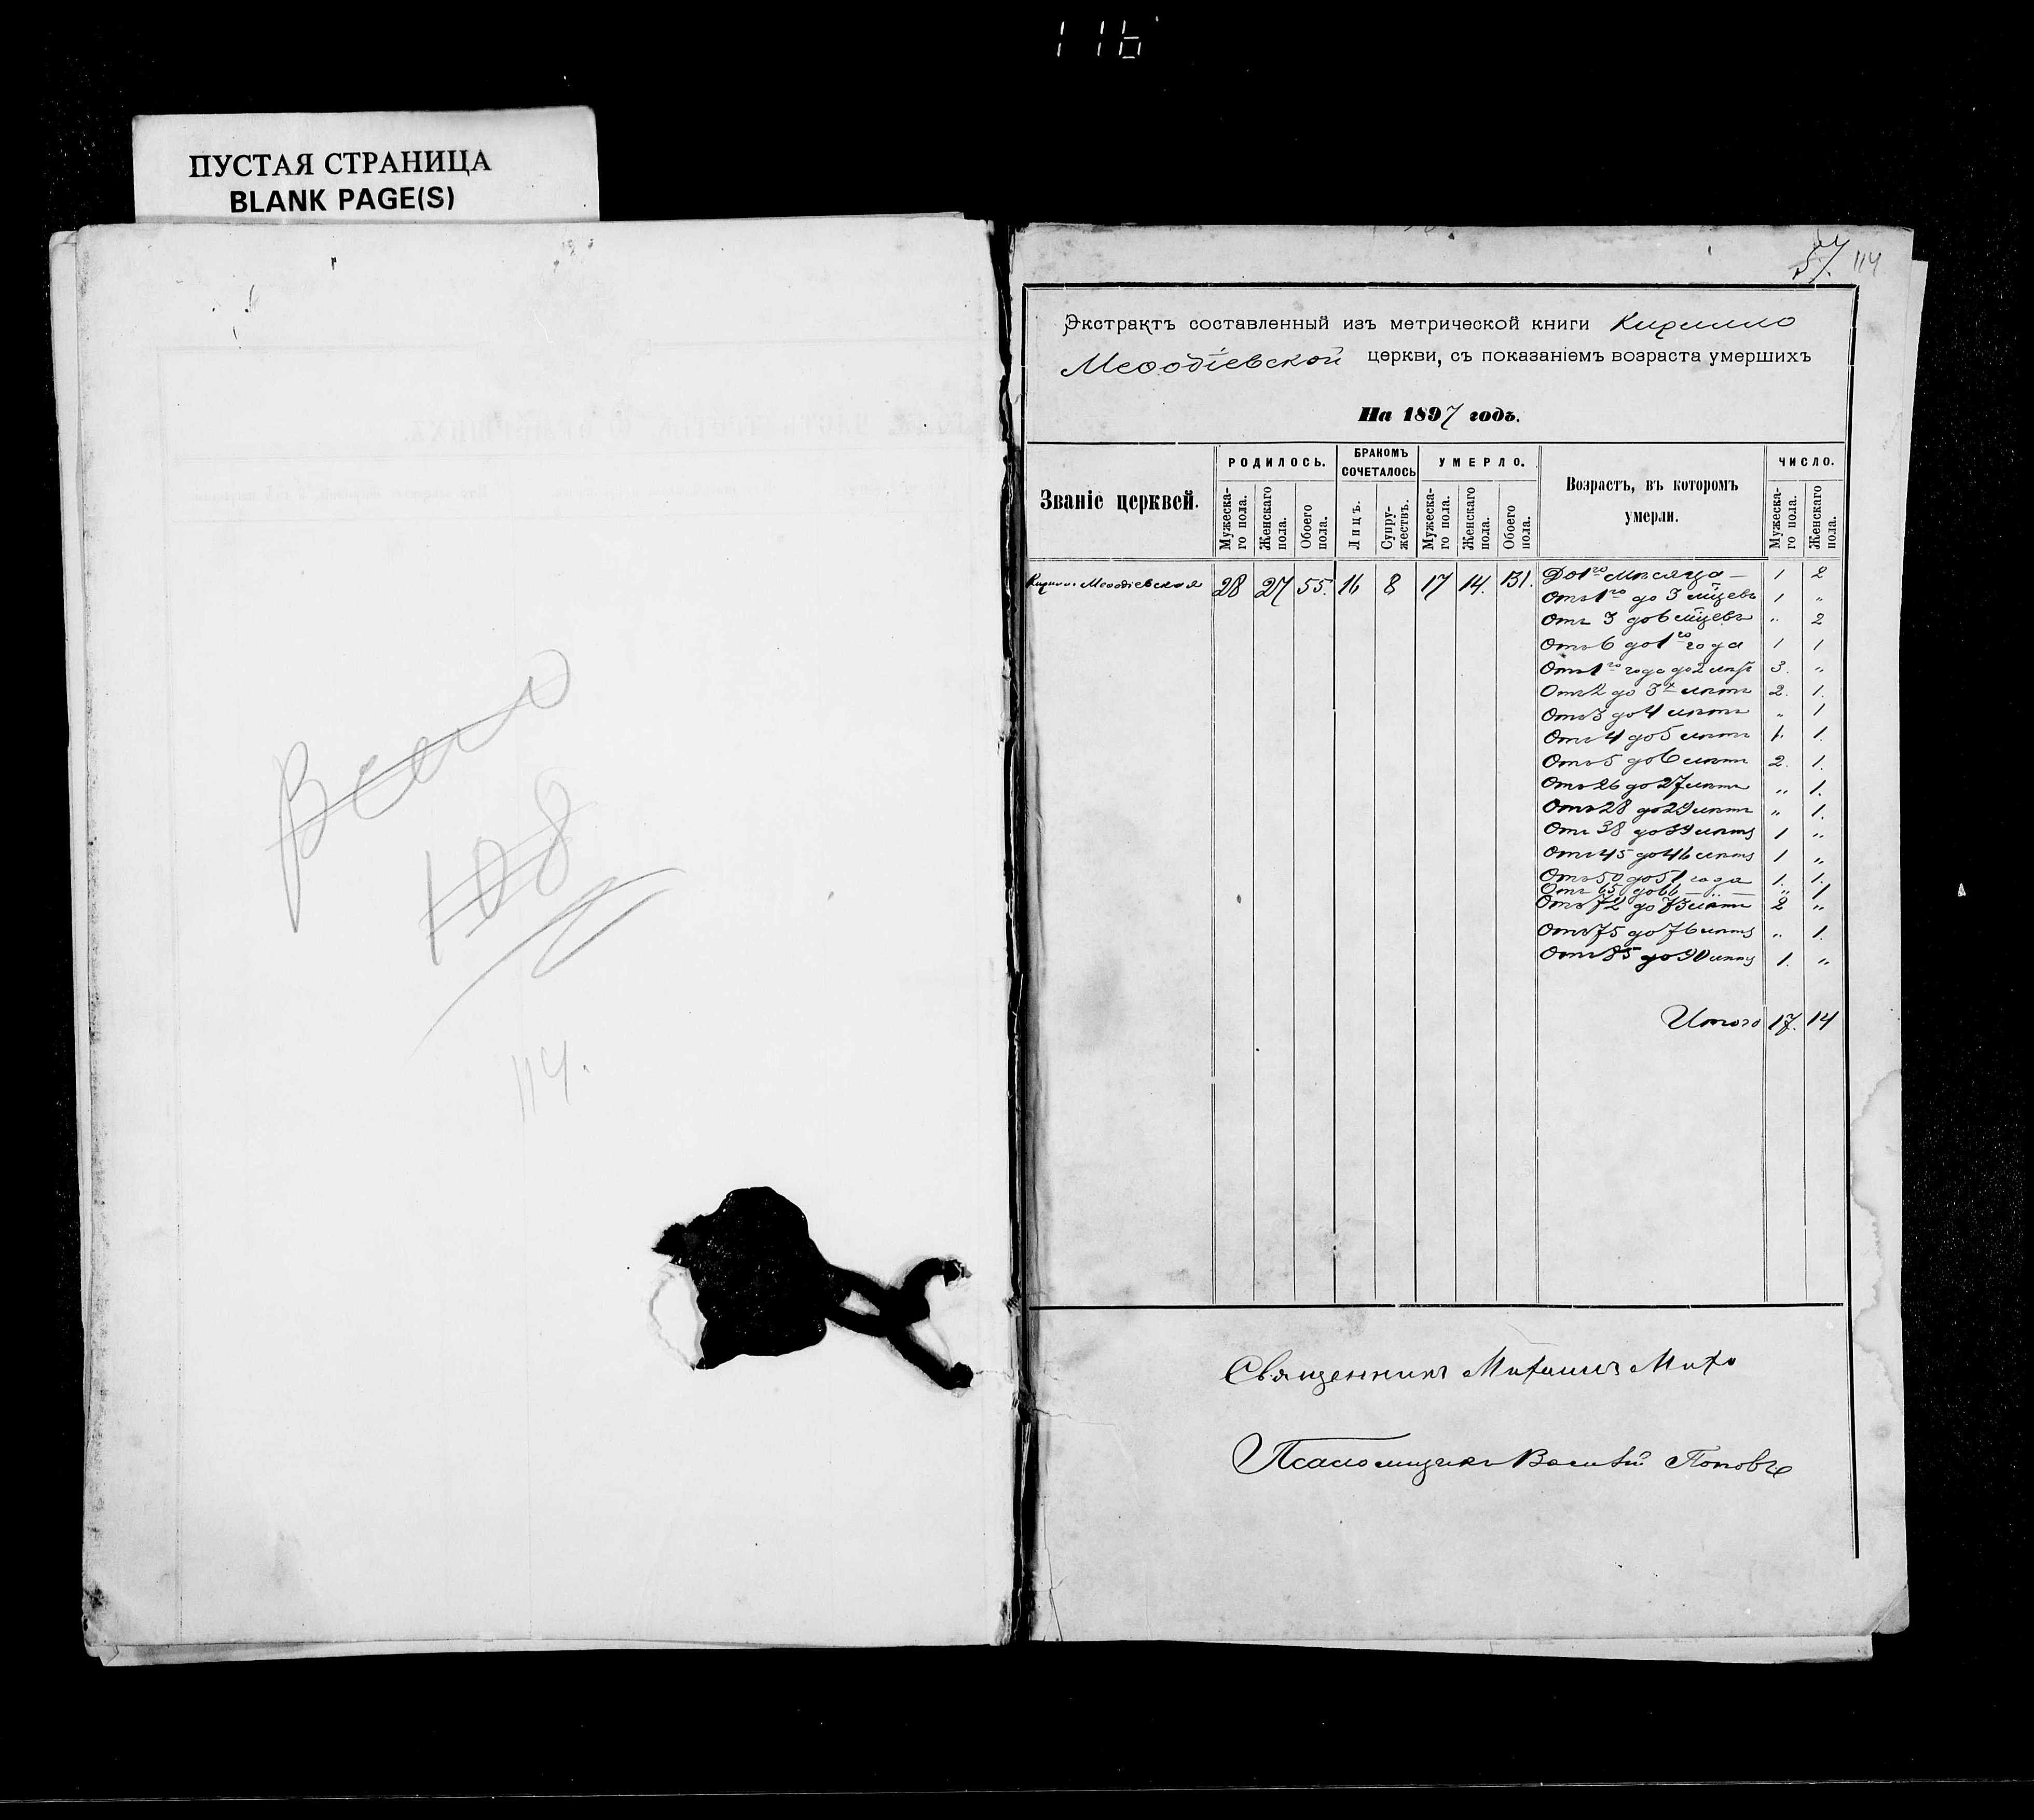 116
ПУСТАЯ СТРАНИЦА
BLANK PAGE(S)
Всего
108
114.
57. 114
Экстрактъ составленный изъ метрической книги Кирилло
Меѳодіевской церкви, съ показаніемъ возраста умершихъ
На 1897 годъ.
Званіе церквей.
РОДИЛОСЬ.
Мужеска-го пола.
Женскаго пола.
Обоего пола.
БРАКОМЪ СОЧЕТАЛОСЬ
Лицъ.
Супру-жествъ.
УМЕРЛО.
Мужеска-го пола.
Женскаго пола.
Обоего пола.
Возрастъ, въ которомъ умерли.
ЧИСЛО.
Мужеска-го пола.
Женскаго пола.
Кирилло Меѳодіевская 28 27 55. 16 8 17 14. 31.
До 1го мѣсяца — 1 2
Отъ 1го до 3 мцевъ 1 "
Отъ 3 до 6 мцевъ " 2
Отъ 6 до 1го года 1 1
Отъ 1го года до 2 лѣтъ 3. "
Отъ 2 до 3х лѣтъ 2. 1.
Отъ 3 до 4 лѣтъ " 1
Отъ 4 до 5 лѣтъ 1. 1.
Отъ 5 до 6 лѣтъ 2. 1.
Отъ 26 до 27 лѣтъ " 1.
Отъ 28 до 29 лѣтъ " 1.
Отъ 38 до 39 лѣтъ 1 "
Отъ 45 до 46 лѣтъ 1 "
Отъ 50 до 51 года 1. 1.
Отъ 65 до 66 — " — " 1
Отъ 72 до 73 лѣтъ 2 "
Отъ 75 до 76 лѣтъ " 1.
Отъ 85 до 90 лѣтъ 1. "
Итого 17. 14
Священникъ Михаилъ
Псаломщикъ Василій Поповъ